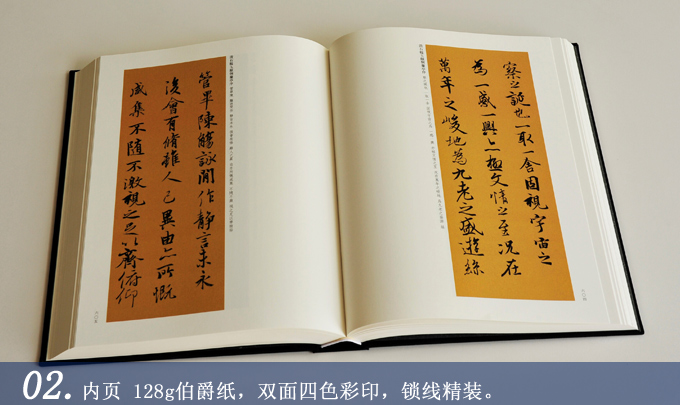 察之詭也一取一舍固視宇宙之
為一感一興亦極文情之至況在
萬年之峻地為九老之盛遊絲
管畢陳觴詠間作靜言未永
後會有脩雖人已異由亦所慨
咸集不隨不激視之足以齊俯仰
02. 内页 128g伯爵纸，双面四色彩印，锁线精装。